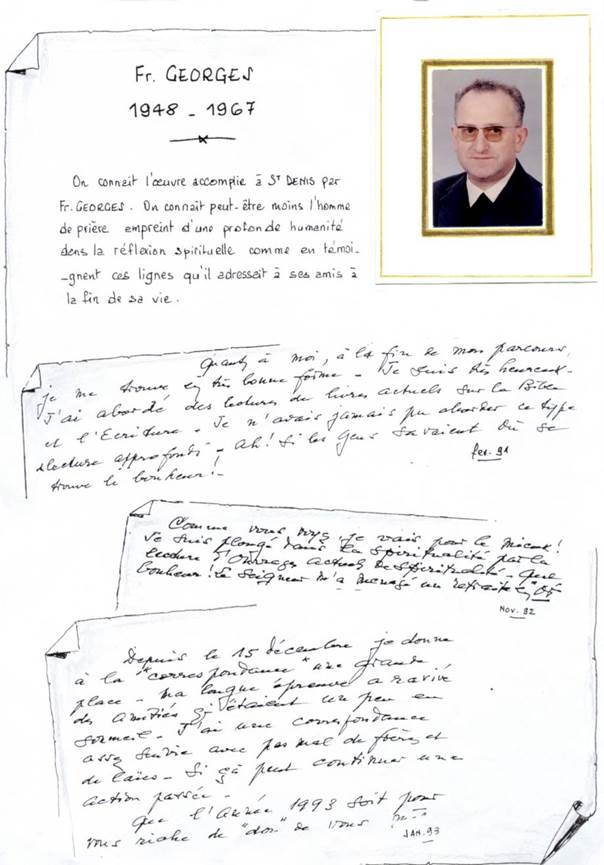 Fr. GEORGES
1948 - 1967
On connait l'œuvre accomplie à St DENIS par
Fr. GEORGES. On connait peut-être moins l'homme
de prière empreint d'une profonde humanité
dans la réflexion spirituelle comme en témoi-
-gnent ces lignes qu'il adressait à ses amis à
la fin de sa vie.
Quant à moi, à la fin de mon parcours,
je me trouve en très bonne forme - Je suis très heureux -
J'ai abordé des lectures de livres actuels sur la Bible
et l'Ecriture - Je n'avais jamais pu aborder ce type
de lecture approfondi - Ah! Si les gens savaient où se
trouve le bonheur!
fev. 91
Comme vous voyez je vais pour le mieux!
Je suis plongé dans la spiritualité par la
lecture d'ouvrages actuels de spiritualité - Quel
bonheur! Le Seigneur m'a menagé une retraite en
NOV. 92
Depuis le 15 décembre je donne
à la "correspondance" une grande
place - Ma longue épreuve a ravivé
des amitiés qui étaient un peu en
sommeil - J'ai une correspondance
assez suivie avec pas mal de frères et
de laïcs - Si çà peut continuer une
action passée -
Que l'Année 1993 soit pour
vous riche de "don" de vous
JAN. 93